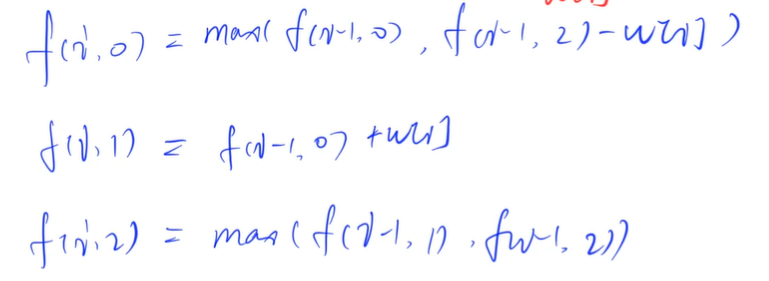 f(i,0) = max( f(i-1,0) , f(i-1, 2) - w[i] )
f(i,1) = f(i-1,0) + w[i]
f(i,2) = max( f(i-1, 1) , f(i-1, 2))